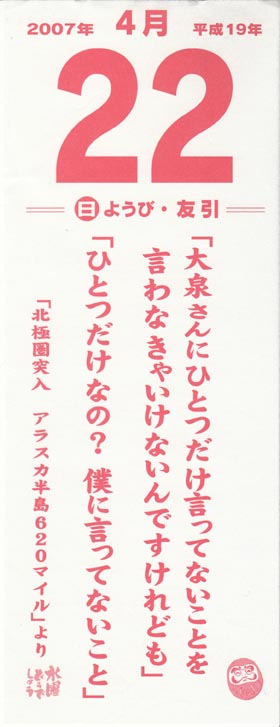 2007年 4月 平成19年
22
日ようび・友引
「大泉さんにひとつだけ言ってないことを
言わなきゃいけないんですけれども」
「ひとつだけなの？ 僕に言ってないこと」
「北極圏突入 アラスカ半島620マイル」より
水曜
どうで
しょう